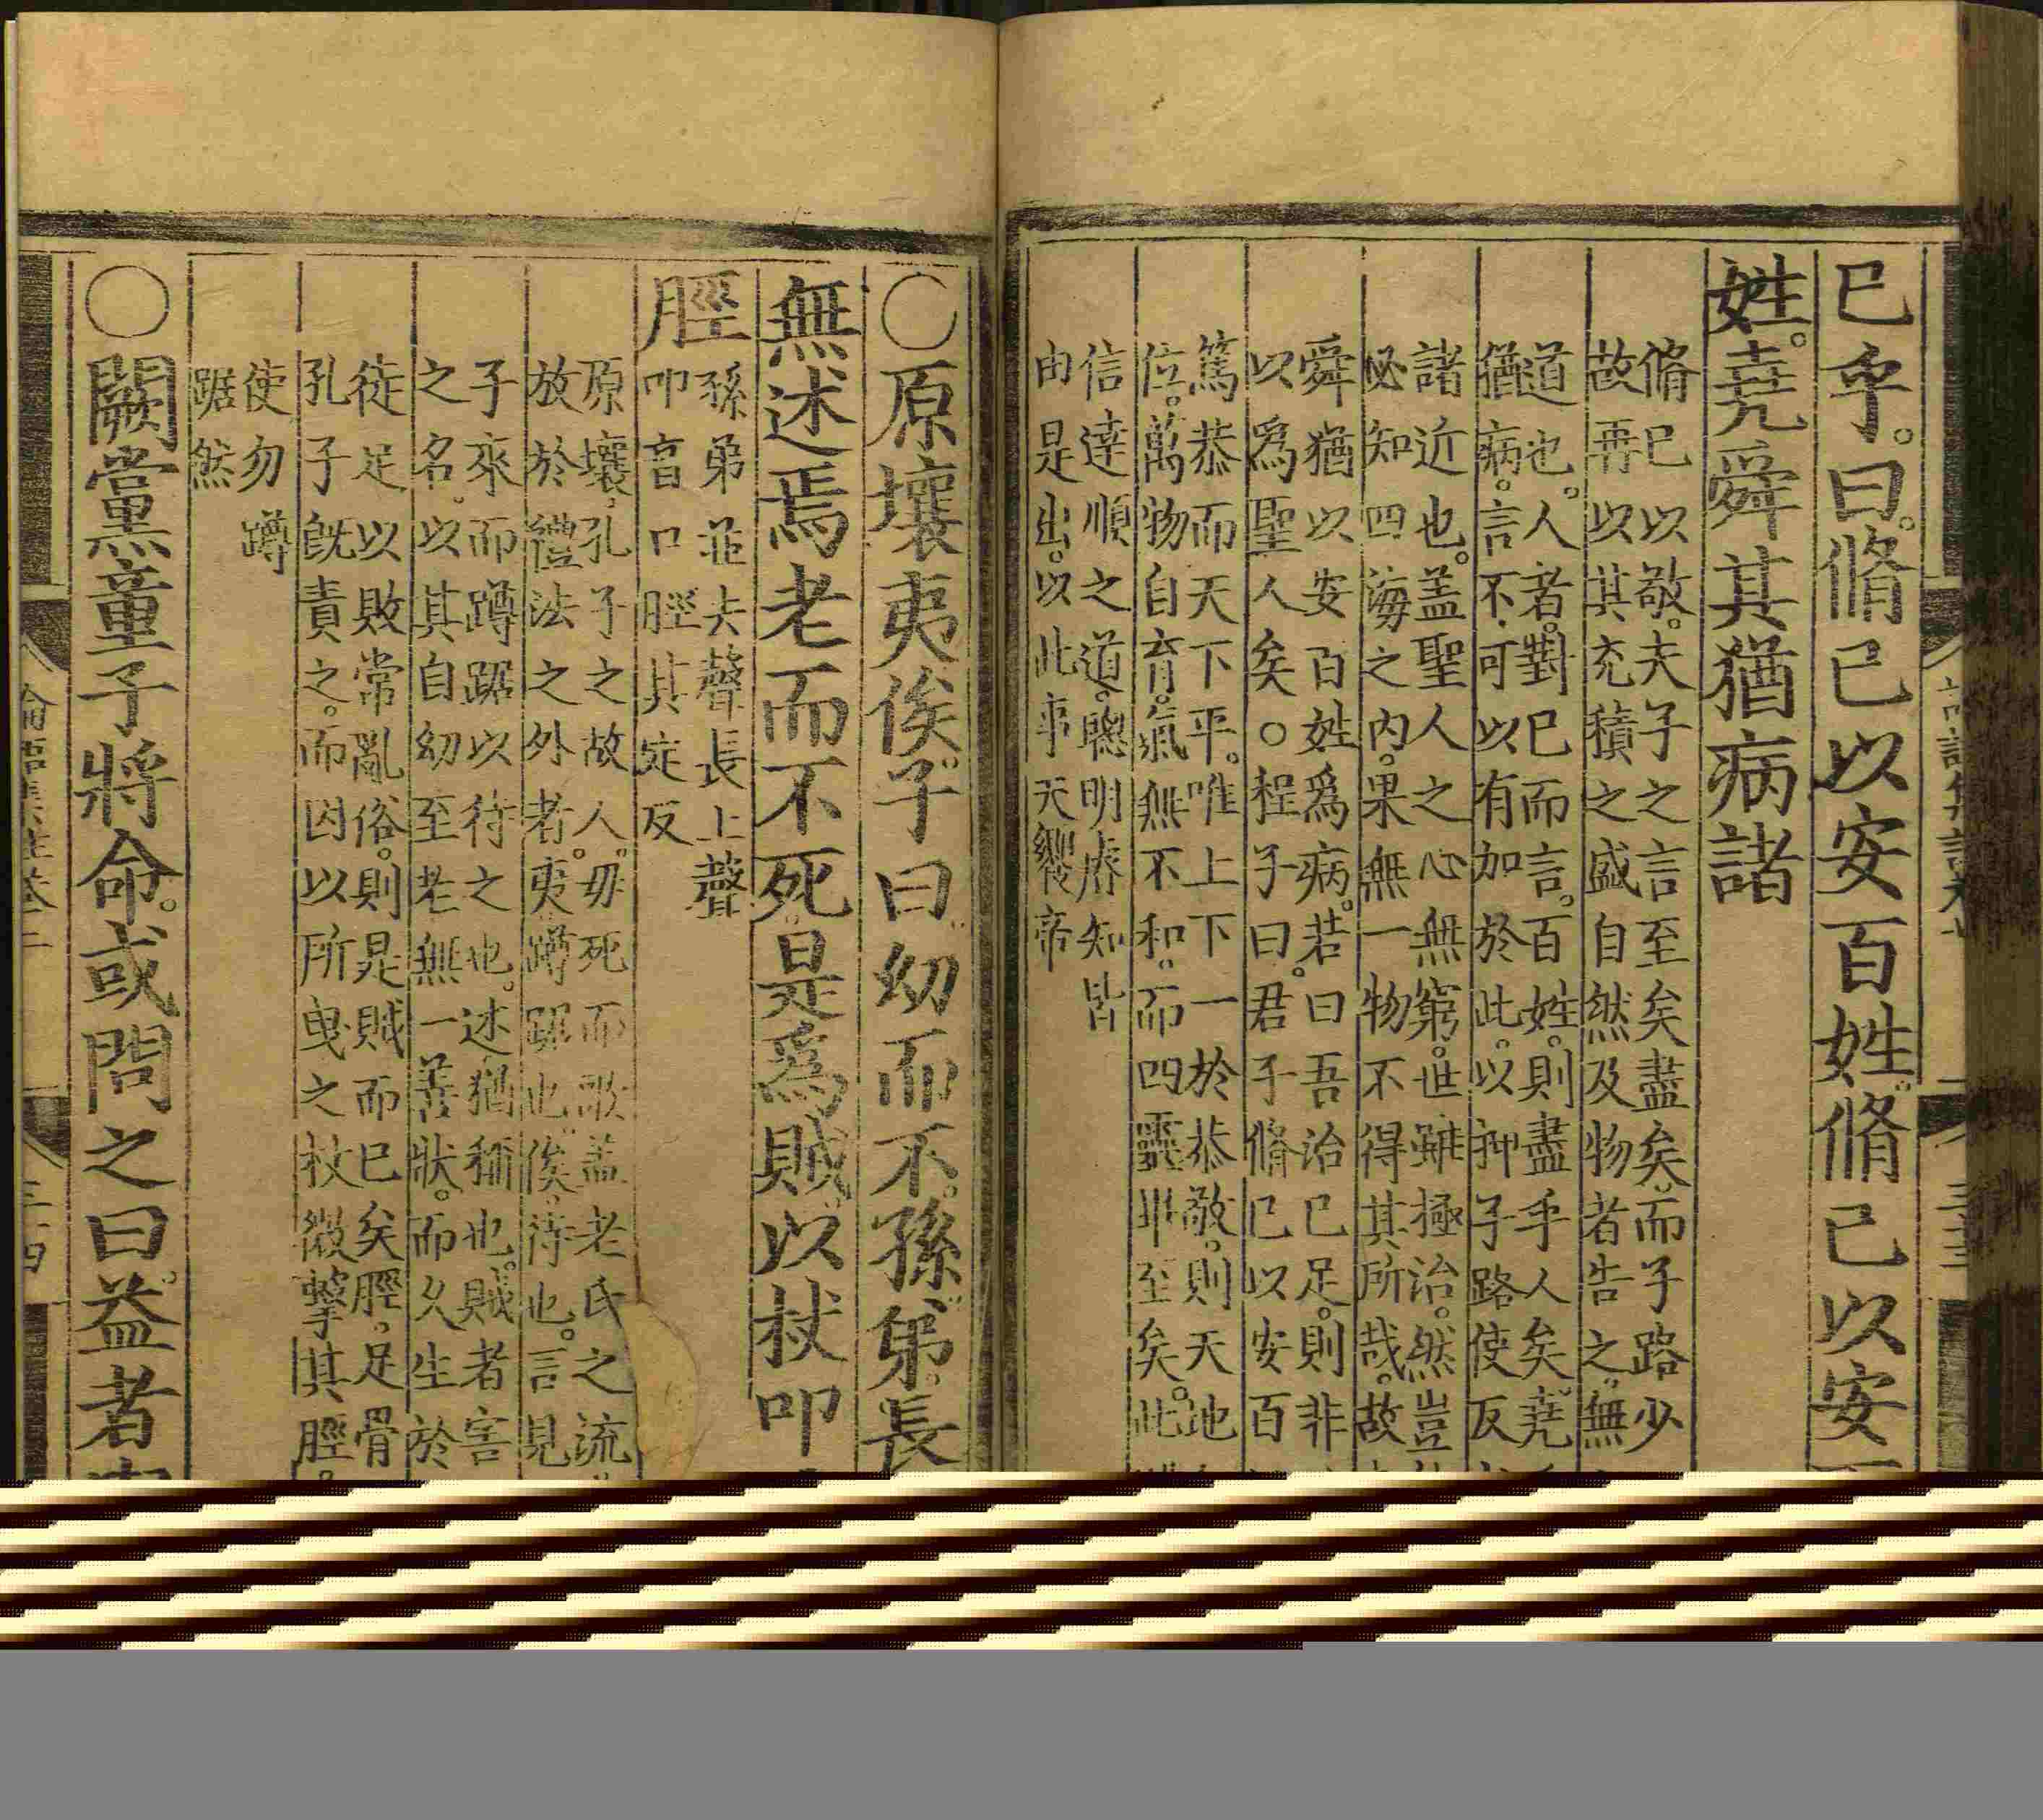 已乎。曰。脩已以安百姓。脩已以安
姓。堯舜其猶病諸
脩已以敬。夫子之言至矣盡矣。而子路少
故再以其充積之盛自然及物者告之。無
道也。人者。對已而言。百姓。則盡乎人矣堯
猶病。言不可以有加於此。以抑子路使反
諸近也。盖聖人之心無窮。世雖極治。然豈
必知四海之內。果無一物不得其所哉。故
舜猶以安百姓爲病。若曰吾治已足。則非
以爲聖人矣。○程子曰。君子脩已以安百
篤恭而天下平。唯上下一於恭敬。則天地
位。萬物自育。氣無不和。而四靈畢至矣。此
信達順之道。聰明睿知皆
由是出。以此事天饗帝
○原壤夷俟。子曰幼而不。孫弟。長
無述焉老而不死是爲賊。以杖叩
脛
孫弟並去聲長上聲
叩音口脛其定反
原壤。孔子之故人。母死而歌盖老氏之流
放於禮法之外者。夷蹲踞也。俟。待也。言見
子來而蹲踞以待之也。述猶稱也。賊者害
之名。以其自幼至老無一善狀。而久生於
徒足以敗常亂俗。則是賊而已矣脛。足骨
孔子旣責之。而因以所曳之杖微擊其脛。
使勿蹲
踞然
○闕黨童子將命。或問之曰。益者